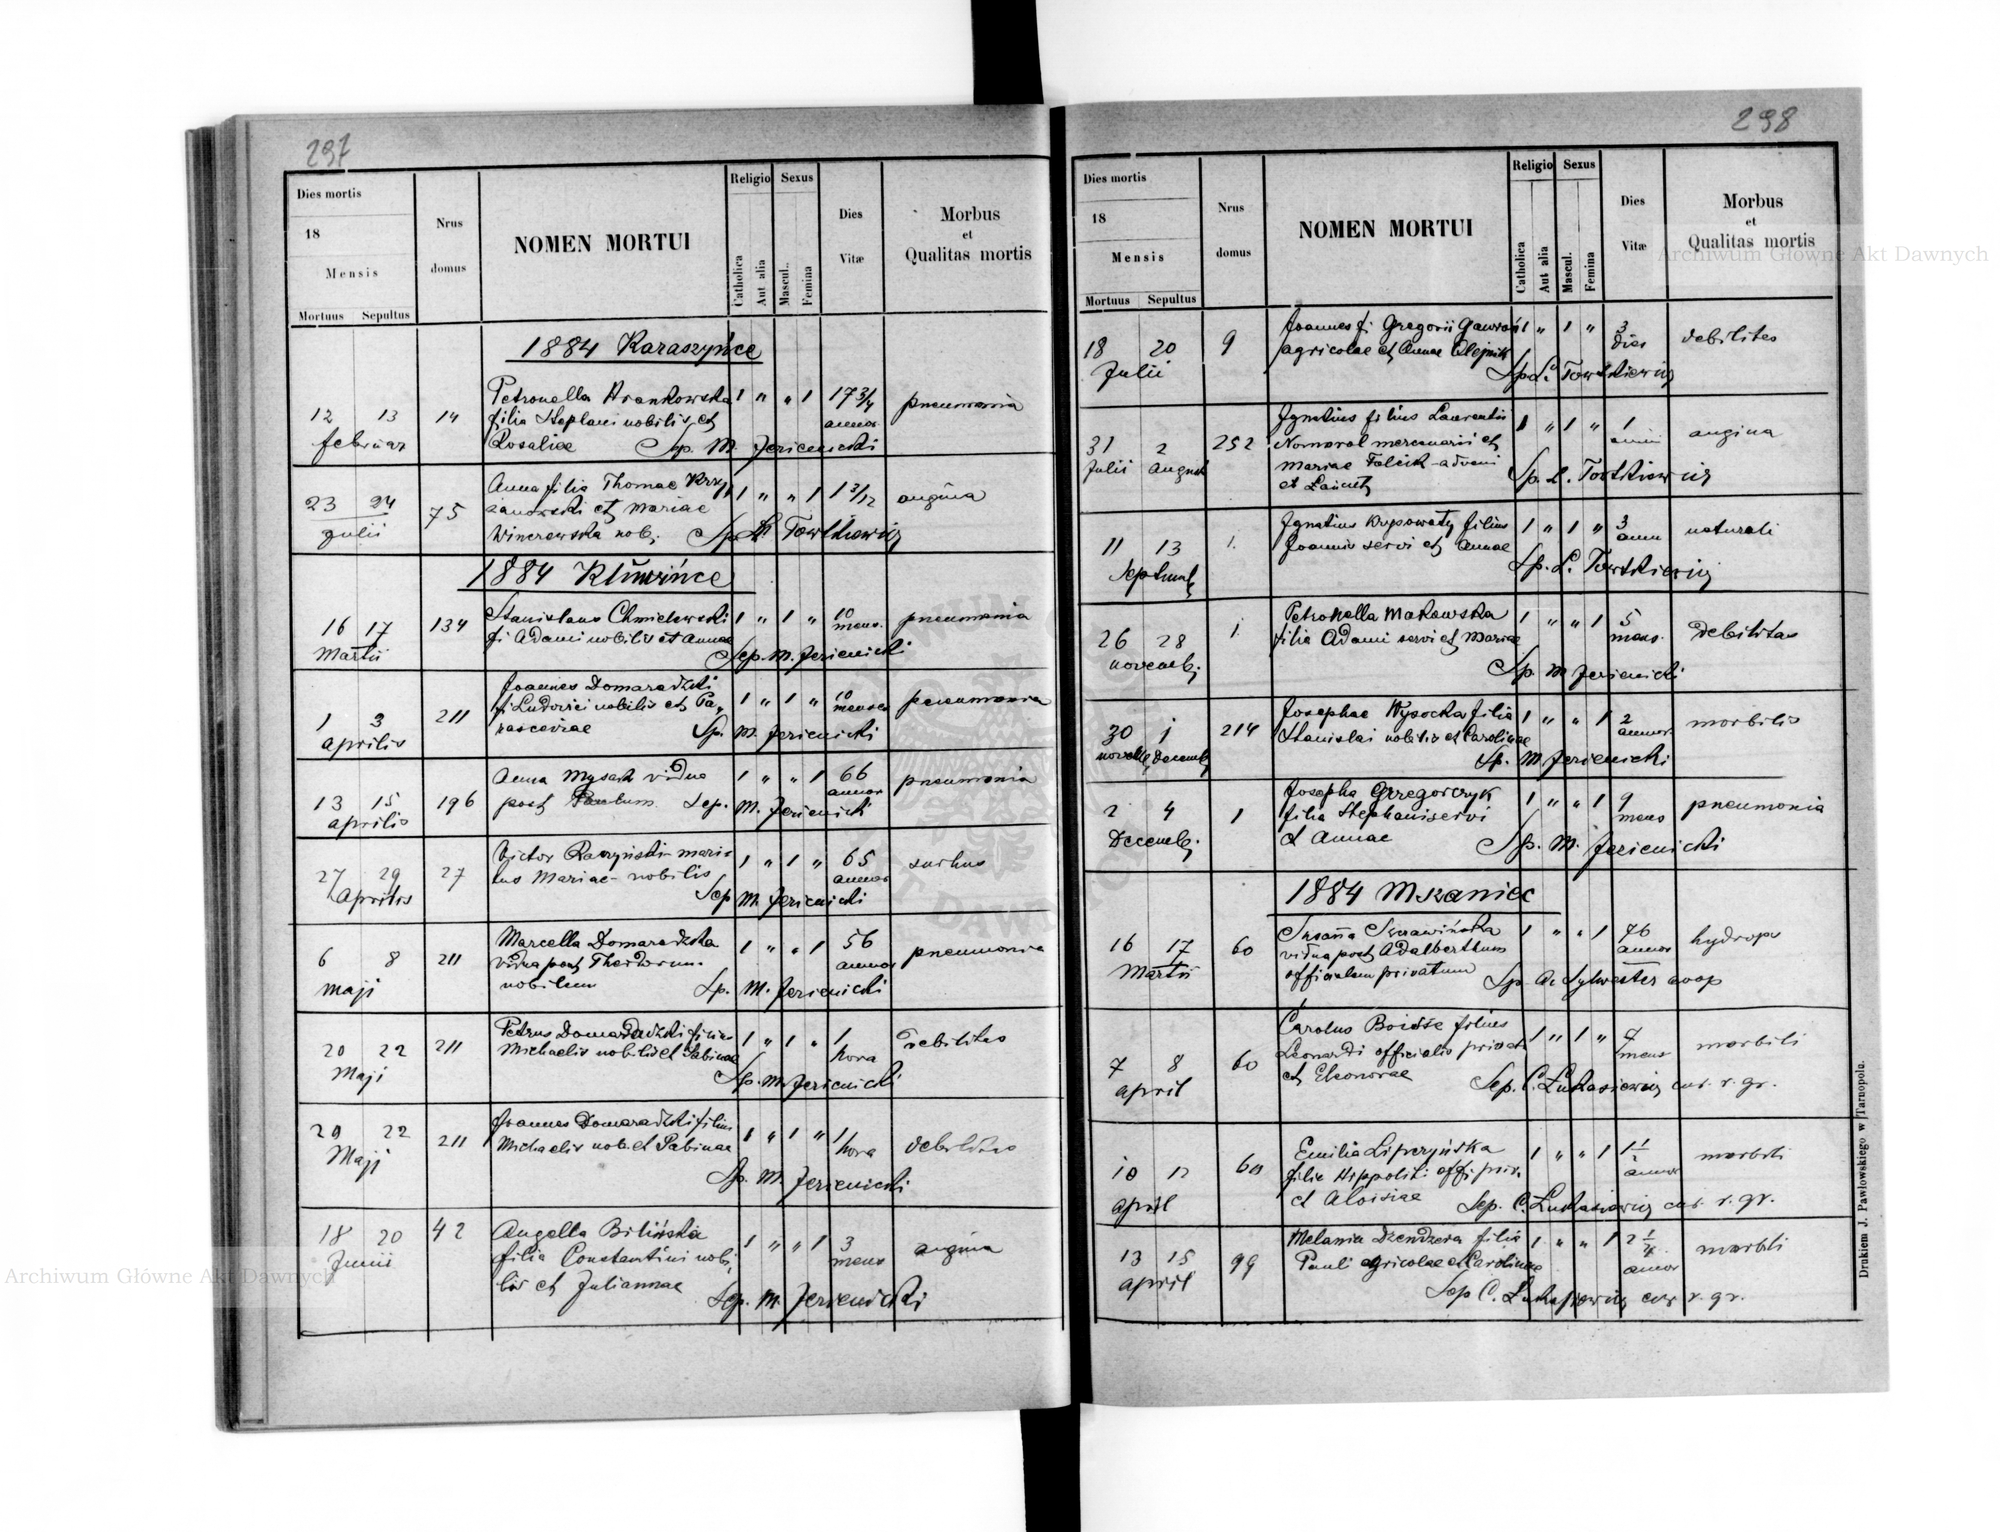 297
Dies mortis
18
Mensis
Mortuus Sepultus
Nrus
domus
NOMEN MORTUI
Religio
Catholica
Aut alia
Sexus
Mascul.
Femina
Dies
Vitæ
Morbus
et
Qualitas mortis
1884 Karaszyńce
12 13 14 Petronella 1 " " 1 17 3/4 pneumonia
februar filia Stephani nobilis et annor
Rosaliae Sep. M. Jezienicki
23 24 75 Anna filia Thomae Krzy 1 " " 1 1 3/12 angina
Julii żanowski et Mariae
nob. Sp. L. Towtkiewicz
1884 Kluwińce
16 17 134 Stanislaus Chmielewski 1 " 1 " 10 mens. pneumonia
Martii fi Adami nobilis et Annae
Sep. M. Jezienicki
1 3 211 Joannes Domaradzki 1 " 1 " 10 menses pneumonia
Aprilis fi Ludovici nobilis et Pa„
rasceviae Sp. M. Jezienicki
13 15 196 Anna Mysak vidua 1 " " 1 66 annor pneumonia
Aprilis post Paulum. Sep. M. Jezienicki
27 29 27 Victor Raczyński mari= 1 " 1 " 65 annor
Aprilis tus Mariae - nobilis
Sep M. Jezienicki
6 8 211 Marcella Domaradzka 1 " " 1 56 annor pneumonia
Maji vidua post Theodorum
nobilem Sp. M. Jezienicki
20 22 211 Petrus Domaradzki filius 1 " 1 " 1 hora debilitas
Maji Michaelis nobilis et Sabinae
Sp. M. Jezienicki
20 22 211 Joannes Domaradzki filius 1 " 1 " 1 hora debilitas
Maji Michaelis nob. et Sabinae
Sp. M. Jezienicki
18 20 42 Angella Bilińska 1 " " 1 3 mens angina
Junii filia Constantini nobi„
lis et Juliannae
Sep. M. Jezienicki
298
Dies mortis
18
Mensis
Mortuus Sepultus
Nrus
domus
NOMEN MORTUI
Religio
Catholica
Aut alia
Sexus
Mascul.
Femina
Dies
Vitæ
Morbus
et
Qualitas mortis
18 20 9 Joannes fi. Gregorii Gawroń 1 " 1 " 3 dies debilitas
Julii agricolae et Annae Olejnik
Sp. L. Towtkiewicz
31 2 252 Ignatius filius Laurentii 1 " 1 " 1 anni angina
Julii August mercenarii et
Mariae
et Sp. L. Towtkiewicz
11 13 1. Ignatius Krysowaty filius 1 " 1 " 3 ann naturali
Septemb. Joannis servi et Annae
Sp. L. Towtkiewicz
26 28 1. Petronella Makowska 1 " " 1 5 mens. debilitas
Novemb. filia Adami servi et Mariae
Sp. M Jezienicki
30 1 214 Josephae Wysocka filia 1 " " 1 2 annor morbilis
Novemb. Decemb. Stanislai nobilis et Carolinae
Sp. M. Jezienicki
2 4 1 Josepha Grzegorczyk 1 " " 1 9 mens pneumonia
Decemb. filia Stephani servi
et Annae Sp. M. Jezienicki
1884 Mszaniec
16 17 60 Susanna 1 " " 1 76 annor hydrops
Martii vidua post Adalbertum
officialem privatum Sp A. Sylwester coop
7 8 60 Carolus filius 1 " 1 " 7 mens morbili
April Leonardi officialis privat
et Eleonorae Sep. C. Łukasiewicz cur. r. gr.
10 60 Emilia Lipczyńska 1 " " 1 1 1/2 annor morbili
April filia Hippoliti offi. priv.
et Aloisiae Sep. C. Łukasiewicz cur. r. gr.
13 15 99 Melania Dzendzera filia 1 " " 1 2 1/4 annor morbili
April Pauli agricolae et Carolinae
Sep C. Łukasiewicz cur r. gr.
Drukiem J. Pawłowskiego w Tarnopolu.
Archiwum Główne Akt Dawnych
Archiwum Główne Akt Dawnych